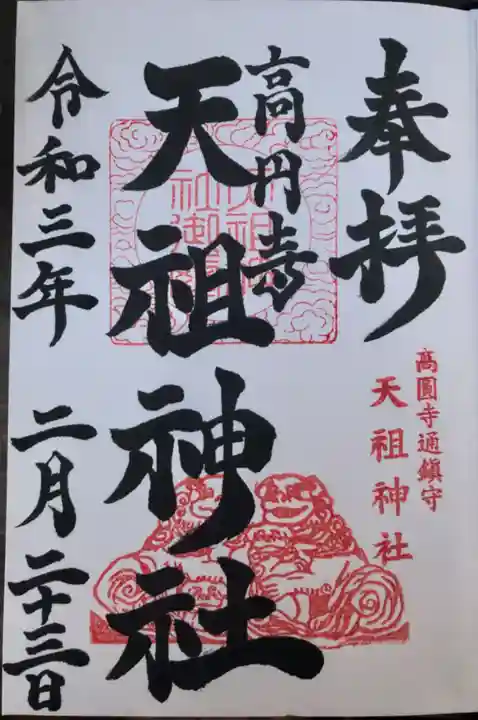 奉拝
高圓寺通鎮守
天祖神社
高円寺
天祖神社
令和三年 二月二十三日